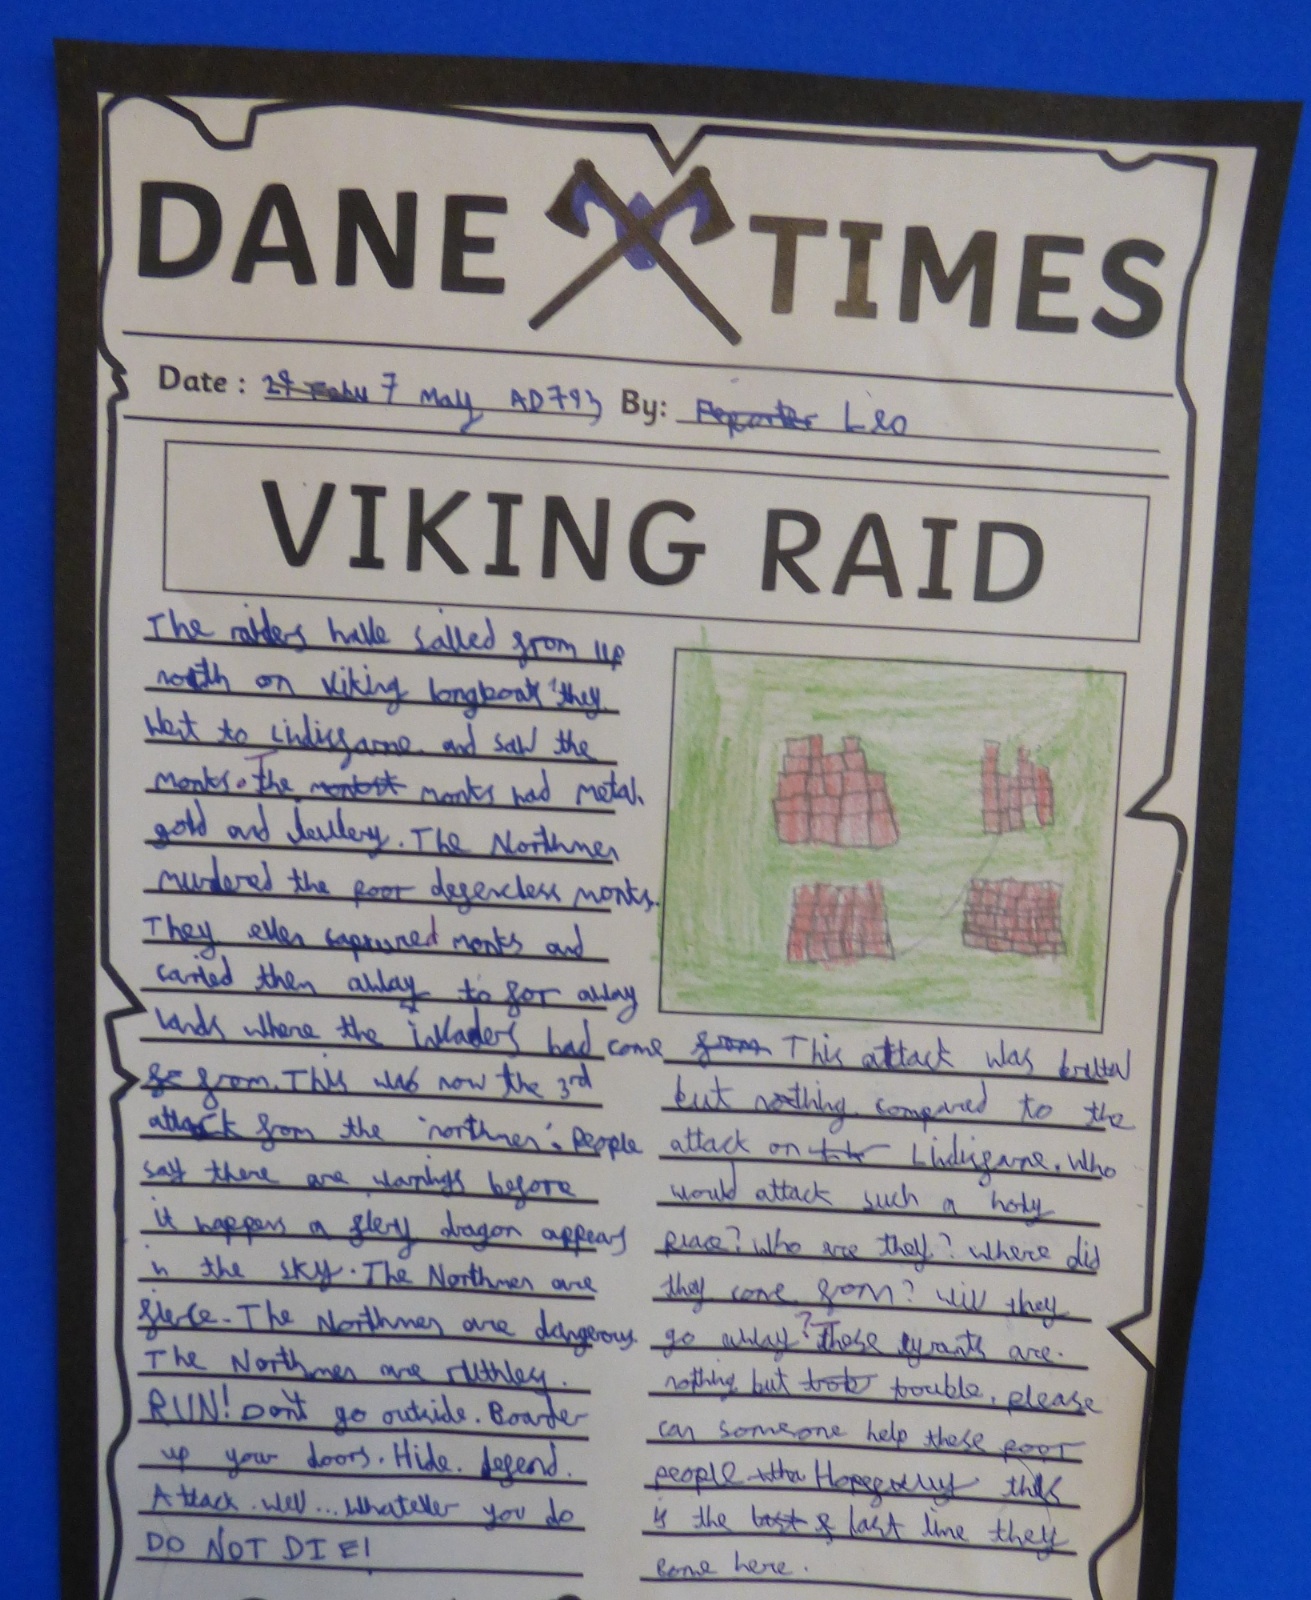 DANE TIMES
Date : 7 May AD793 By: Leo
VIKING RAID
The raiders have sailed from up
north on viking longboat they
went to Lindisfarne and saw the
monks. The monks had metal,
gold and jewllery. The Northmen
murdered the poor defencless monks.
They even captured monks and
caried them away to far away
lands where the invaders had come
from. This was now the 3rd
attack from the 'northmen'. People
say there are warnings before
it happens a fiery dragon appears
in the sky. The Northmen are
fierce. The Northmen are dangerous.
The Northmen are ruthless.
RUN! Don't go outside. Boarder
up your doors. Hide. Defend.
Attack. Well... Whatever you do
DO NOT DIE!
This attack was
but nothing compared to the
attack on Lindisfarne. Who
would attack such a holy
place? Who are they? Where did
they come from? Will they
go away? These tyrants are
nothing but trouble, please
can someone help these poor
people Hopefully this
is the last time they
come here.